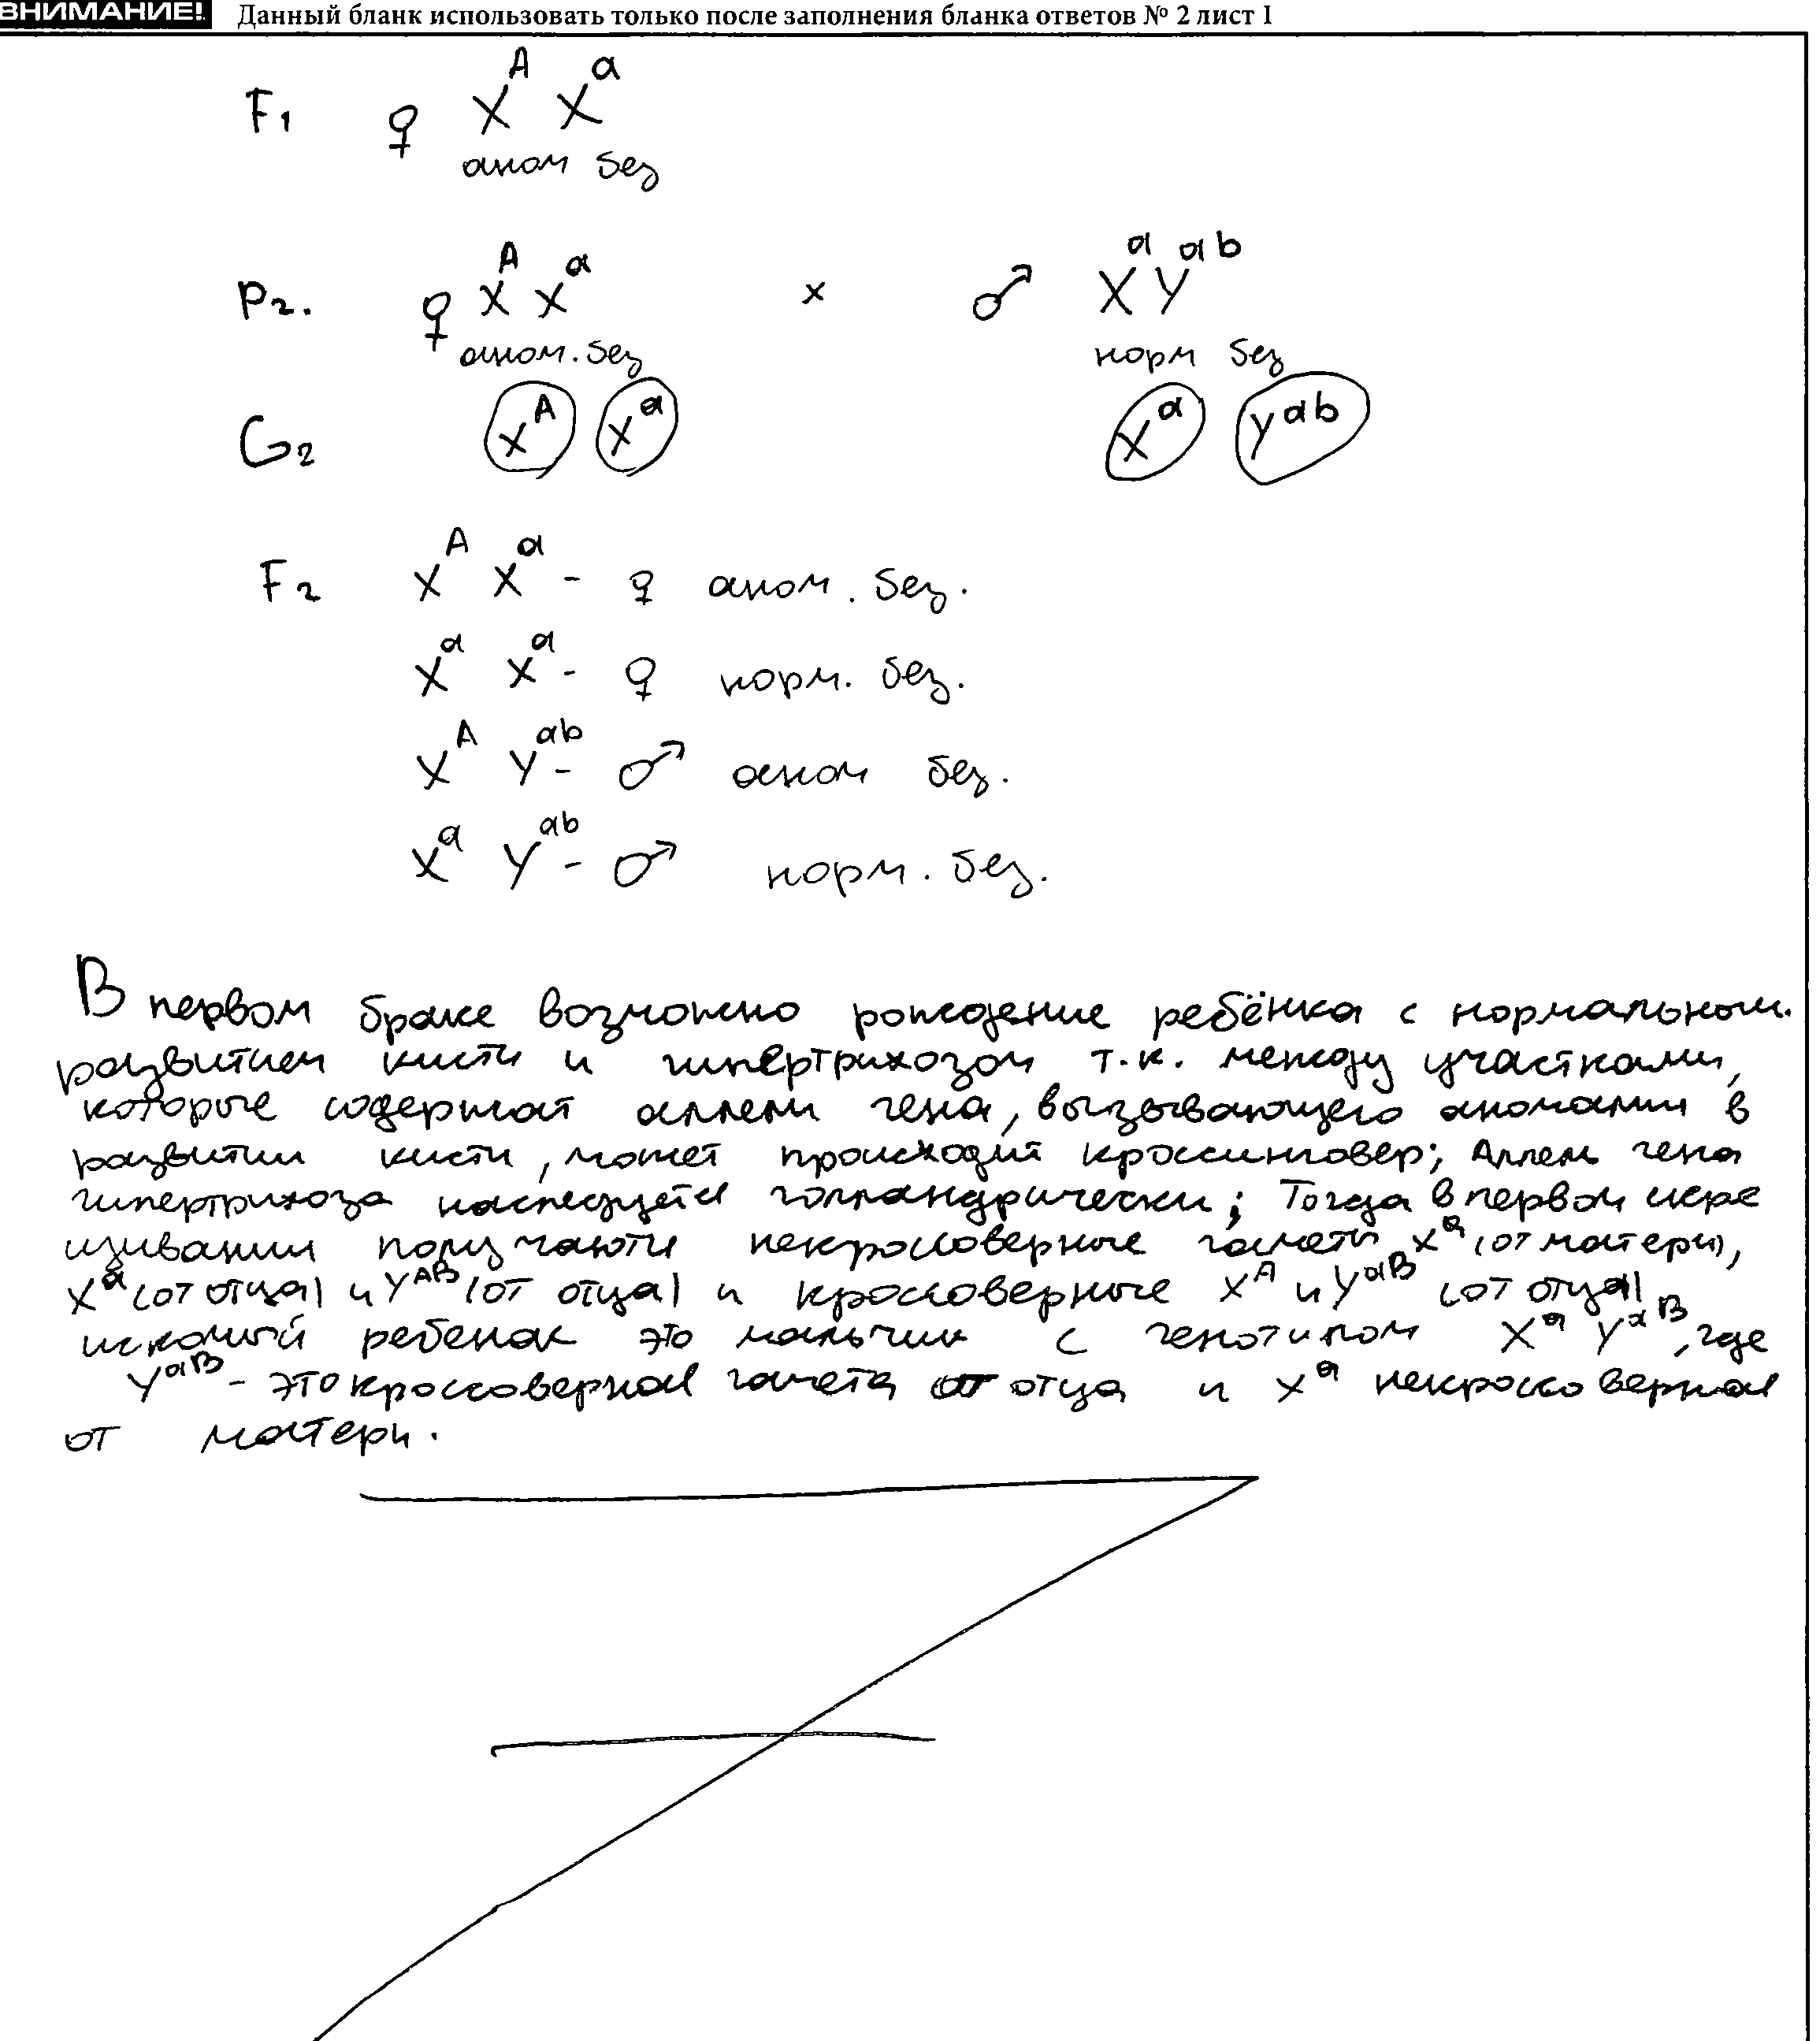 ВНИМАНИЕ! Данный бланк использовать только после заполнения бланка ответов № 2 лист 1
F₁ ♀ Xᴬ Xᵃ
аном без
P₂. ♀ Xᴬ Xᵃ × ♂ Xᵃ Yᵃᵇ
аном. без норм без
G₂ Xᴬ Xᵃ Xᵃ Yᵃᵇ
F₂ Xᴬ Xᵃ - ♀ аном. без.
Xᵃ Xᵃ - ♀ норм. без.
Xᴬ Yᵃᵇ - ♂ аном без.
Xᵃ Yᵃᵇ - ♂ норм. без.
В первом браке возможно рождение ребёнка с нормальным.
развитием кисти и гипертрихозом т.к. между участками,
которые содержат аллели гена, вызывающего аномалии в
развитии кисти, может происходит кроссинговер; Аллель гена
гипертрихоза наследуется голландрически; Тогда в первом скре
щивании получаются некроссоверные гаметы Xᵃ (от матери),
Xᵃ (от отца) и Yᴬᴮ (от отца) и кроссоверные Xᴬ и Yᵃᴮ (от отца)
искомый ребенок это мальчик с генотипом Xᵃ Yᵃᴮ, где
Yᵃᴮ - это кроссоверная гамета от отца и Xᵃ некроссоверная
от матери.